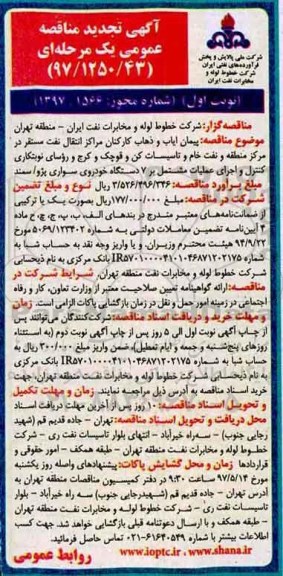 آگهی تجدید مناقصه
عمومی یک مرحله‌ای
(۹۷/۱۲۵۰/۴۳)
شرکت ملی پالایش و پخش
فرآورده‌های نفتی ایران
شرکت خطوط لوله و
مخابرات نفت ایران
(نوبت اول) (شماره مجوز: ۱۵۶۶ .۱۳۹۷)
مناقصه‌گزار: شرکت خطوط لوله و مخابرات نفت ایران - منطقه تهران
موضوع مناقصه: پیمان ایاب و ذهاب کارکنان مراکز انتقال نفت مستقر در
مرکز منطقه و نفت خام و تاسیسات کن و قوچک و کرج و رؤسای نوبتکاری
کنترل و اجرای عملیات مشتمل بر ۷ دستگاه خودروی سواری پژو/ سمند
مبلغ برآورد مناقصه: ۳/۵۲۶/۴۹۶/۳۴۶ ریال نوع و مبلغ تضمین
شرکت در مناقصه: مبلغ ۱۷۷/۰۰۰/۰۰۰ریال بصورت یک یا ترکیبی
از ضمانت‌نامه‌های معتبر مندرج در بندهای الف، ب، پ، ج، چ، ح ماده
۴ آیین‌نامه تضمین معاملات دولتی به شماره ۵۰۶۹/۱۲۳۴۰۲ مورخ
۹۴/۹/۲۲ هیئت محترم وزیران، و یا واریز وجه نقد به حساب شبا به
شماره IR۵۷۰۱۰۰۰۰۴۱۰۱۰۴۶۸۷۱۲۰۲۱۷۵ بانک مرکزی به نام ذیحسابی
شرکت خطوط لوله و مخابرات نفت منطقه تهران، شرایط شرکت در
مناقصه: ارائه گواهینامه تعیین صلاحیت معتبر از وزارت تعاون، کار و رفاه
اجتماعی در زمینه امور حمل و نقل در زمان بازگشایی پاکات الزامی است. زمان
و مهلت خرید و دریافت اسناد مناقصه: شرکت‌کنندگان می‌توانند پس
از چاپ آگهی نوبت اول الی ۵ روز پس از چاپ آگهی نوبت دوم (به استثناء
روزهای پنج‌شنبه و جمعه و ایام تعطیل)، ضمن واریز مبلغ ۳۰۰/۰۰۰ ریال به
حساب شبا به شماره IR۵۷۰۱۰۰۰۰۴۱۰۱۰۴۶۸۷۱۲۰۲۱۷۵ بانک مرکزی
به نام ذیحسابی شرکت خطوط لوله و مخابرات نفت منطقه تهران، جهت
خرید اسناد مناقصه به آدرس ذیل مراجعه نمایند. زمان و مهلت تکمیل
و تحویل اسناد مناقصه: ۱۰ روز پس از آخرین مهلت دریافت اسناد
محل دریافت و تحویل اسناد مناقصه: تهران - جاده قدیم قم (شهید
رجایی جنوبی) - سه‌راه خیرآباد - انتهای بلوار تاسیسات نفت ری - شرکت
خطوط لوله و مخابرات نفت منطقه تهران - طبقه همکف - امور حقوقی و
قراردادها زمان و محل گشایش پاکات: پیشنهادهای واصله روز یکشنبه
مورخ ۹۷/۵/۱۴ ساعت ۹:۳۰ در دفتر کمیسیون مناقصات منطقه تهران به
آدرس تهران - جاده قدیم قم (شهیدرجایی جنوبی) سه راه خیرآباد - بلوار
تاسیسات نفت ری - شرکت خطوط لوله و مخابرات نفت منطقه تهران
- طبقه همکف و با ارسال دعوتنامه قبلی بازگشایی خواهد شد. جهت کسب
اطلاعات بیشتر با شماره ۶۱۶۴۰۵۴۹-۰۲۱ تماس حاصل فرمائید.
www.ioptc.ir ، www.shana.ir روابط عمومی